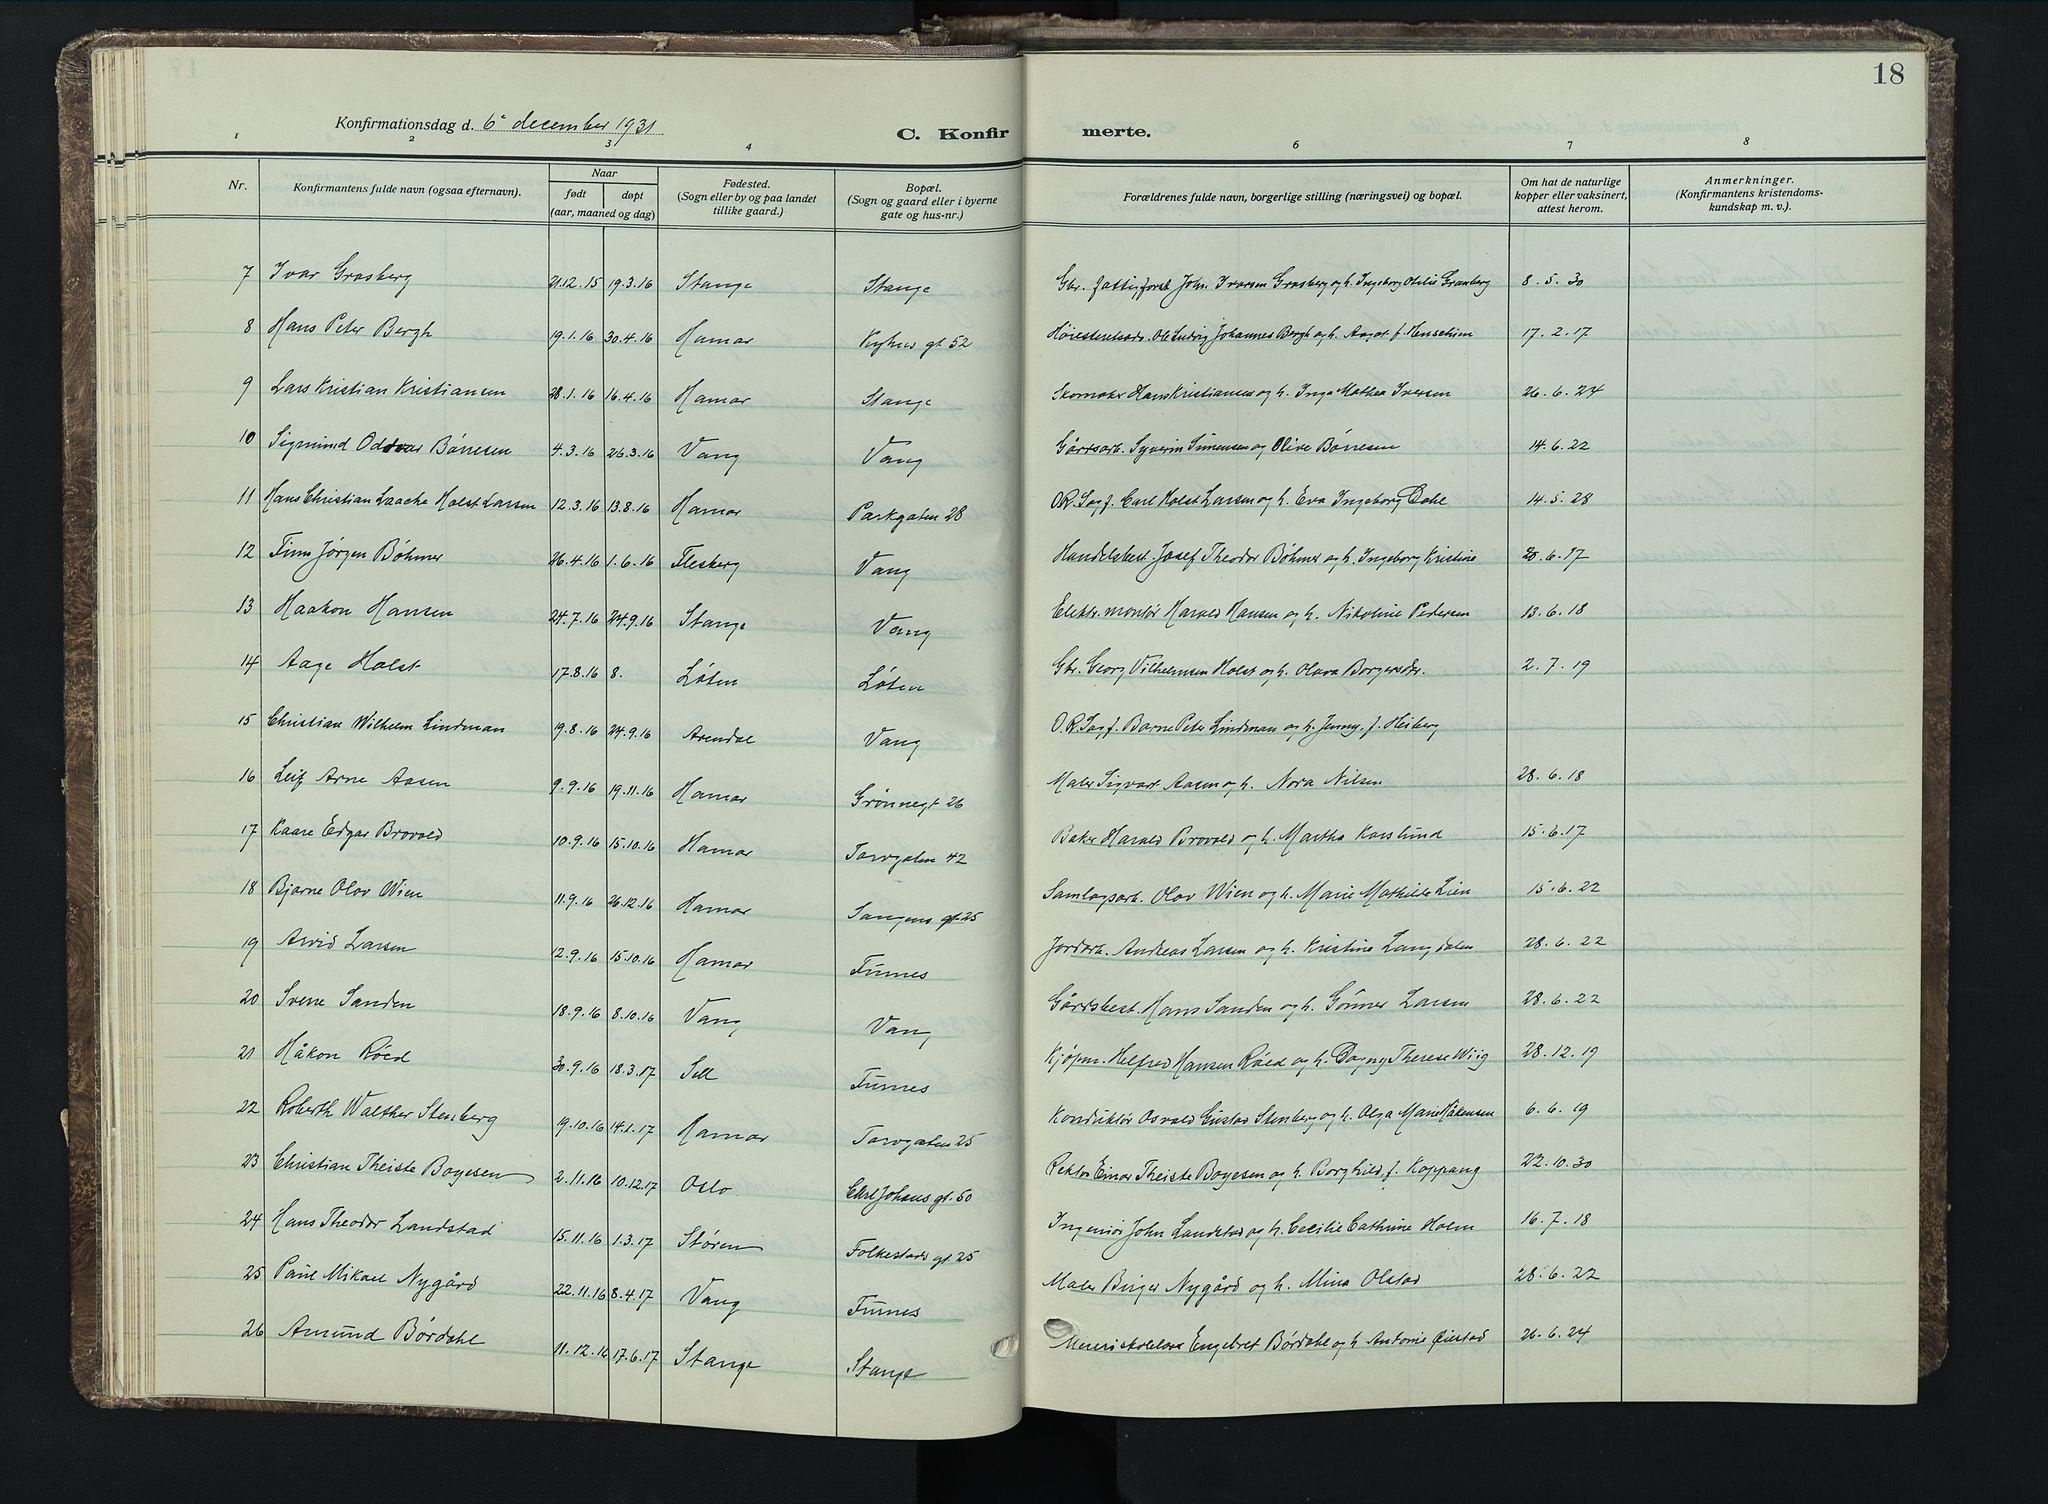 18
Konfirmationsdag d. 6 december 1931
C. Konfirmerte.
1 2 3 4 6 7 8
Nr. Konfirmantens fulde navn (ogsaa efternavn). Naar født døpt (aar, maaned og dag) Fødested. (Sogn eller by og paa landet tillike gaard.) Bopæl. (Sogn og gaard eller i byerne gate og hus-nr.) Forældrenes fulde navn, borgerlige stilling (næringsvei) og bopæl. Om hat de naturlige kopper eller vaksinert, attest herom. Anmerkninger. (Konfirmantens kristendoms-kundskap m. v.).
7 Ivar Grasberg 21.12.15 19.3.16 Stange Stange Gbr. fattigforst. Joh. Ivarsen Grasberg og h. Ingeborg Otilie Granberg 8.5.30
8 Hans Peter Bergh 19.1.16 30.4.16 Hamar gt. 52 Ole Ludvig Johannes Bergh og h. Aagot f. 17.2.17
9 Lars Kristian Kristiansen 28.1.16 16.4.16 Hamar Stange Skomaker Hans Kristiansen og h. Inga Mathea Iversen 26.6.24
10 Sigmund Oddvar Bønesen 4.3.16 26.3.16 Vang Vang Gårdsarb. Syverin Simensen og Olive Bønesen 14.6.22
11 Hans Christian Laache Holst Larsen 12.3.16 13.8.16 Hamar Parkgaten 28 O.R.Sagf. Carl Holst Larsen og h. Eva Ingeborg Dahl 14.5.28
12 Finn Jørgen Bøhmer 26.4.16 1.6.16 Flesberg Vang Handelsbest. Josef Theodor Bøhmer og h. Ingeborg Kristine 20.6.17
13 Haakon Hansen 24.7.16 24.9.16 Stange Vang Elektr. montør Harald Hansen og h. Nikoline Pedersen 13.6.18
14 Aage Holst 17.8.16 8. Løten Løten Gbr. Georg Vilhelmsen Holst og h. Olava Borgersdr. 2.7.19
15 Christian Wilhelm Lindman 19.8.16 24.9.16 Arendal Vang O.R.Sagf. Barne Peter Lindman og h. Jenny, f. Heiberg
16 Leif Arne Aasen 9.9.16 19.11.16 Hamar Grønnegt 26 Maler Sigvart Aasen og h. Nora Nilsen 28.6.18
17 Kaare Edgar Brovold 10.9.16 15.10.16 Hamar Torvgaten 42 Baker Harald Brovold og h. Martha Karslund 15.6.17
18 Bjarne Olav Wien 11.9.16 26.12.16 Hamar gt. 25 Samlagsarb. Olav Wien og h. Marie Mathilde Lien 15.6.22
19 Arvid Larsen 12.9.16 15.10.16 Hamar Furnes Jordarb. Andreas Larsen og h. Kristine Langdalen 28.6.22
20 Svene Sanden 18.9.16 8.10.16 Vang Vang Gårdsbest. Hans Sanden og h. Gunnor Larsen 28.6.22
21 Håkon Røed 30.9.16 18.3.17 Sell Furnes Kjøpm. Helfred Hansen Røed og h. Dagny Therese Wiig 28.12.19
22 Roberth Walther Stenberg 19.10.16 14.1.17 Hamar Torvgaten 25 Konduktør Osvald Gustav Stenberg og h. Olga Marie Håkensen 6.6.19
23 Christian Theiste Boyesen 2.11.16 10.12.17 Oslo Carl Johans gt. 50 Rektor Einar Theiste Boyesen og h. Borghild, f. Koppang 22.10.30
24 Hans Theodor Landstad 15.11.16 1.3.17 Støren Folkestads gt. 25 Ingeniør John Landstad og h. Cecilie Cathrine Holm 16.7.18
25 Paul Mikael Nygård 22.11.16 8.4.17 Vang Furnes Maler Birger Nygård og h. Mina Olstad 28.6.22
26 Amund Børdahl 11.12.16 17.6.17 Stange Stange Engebret Børdahl og h. Antonie Øiestad 26.6.24